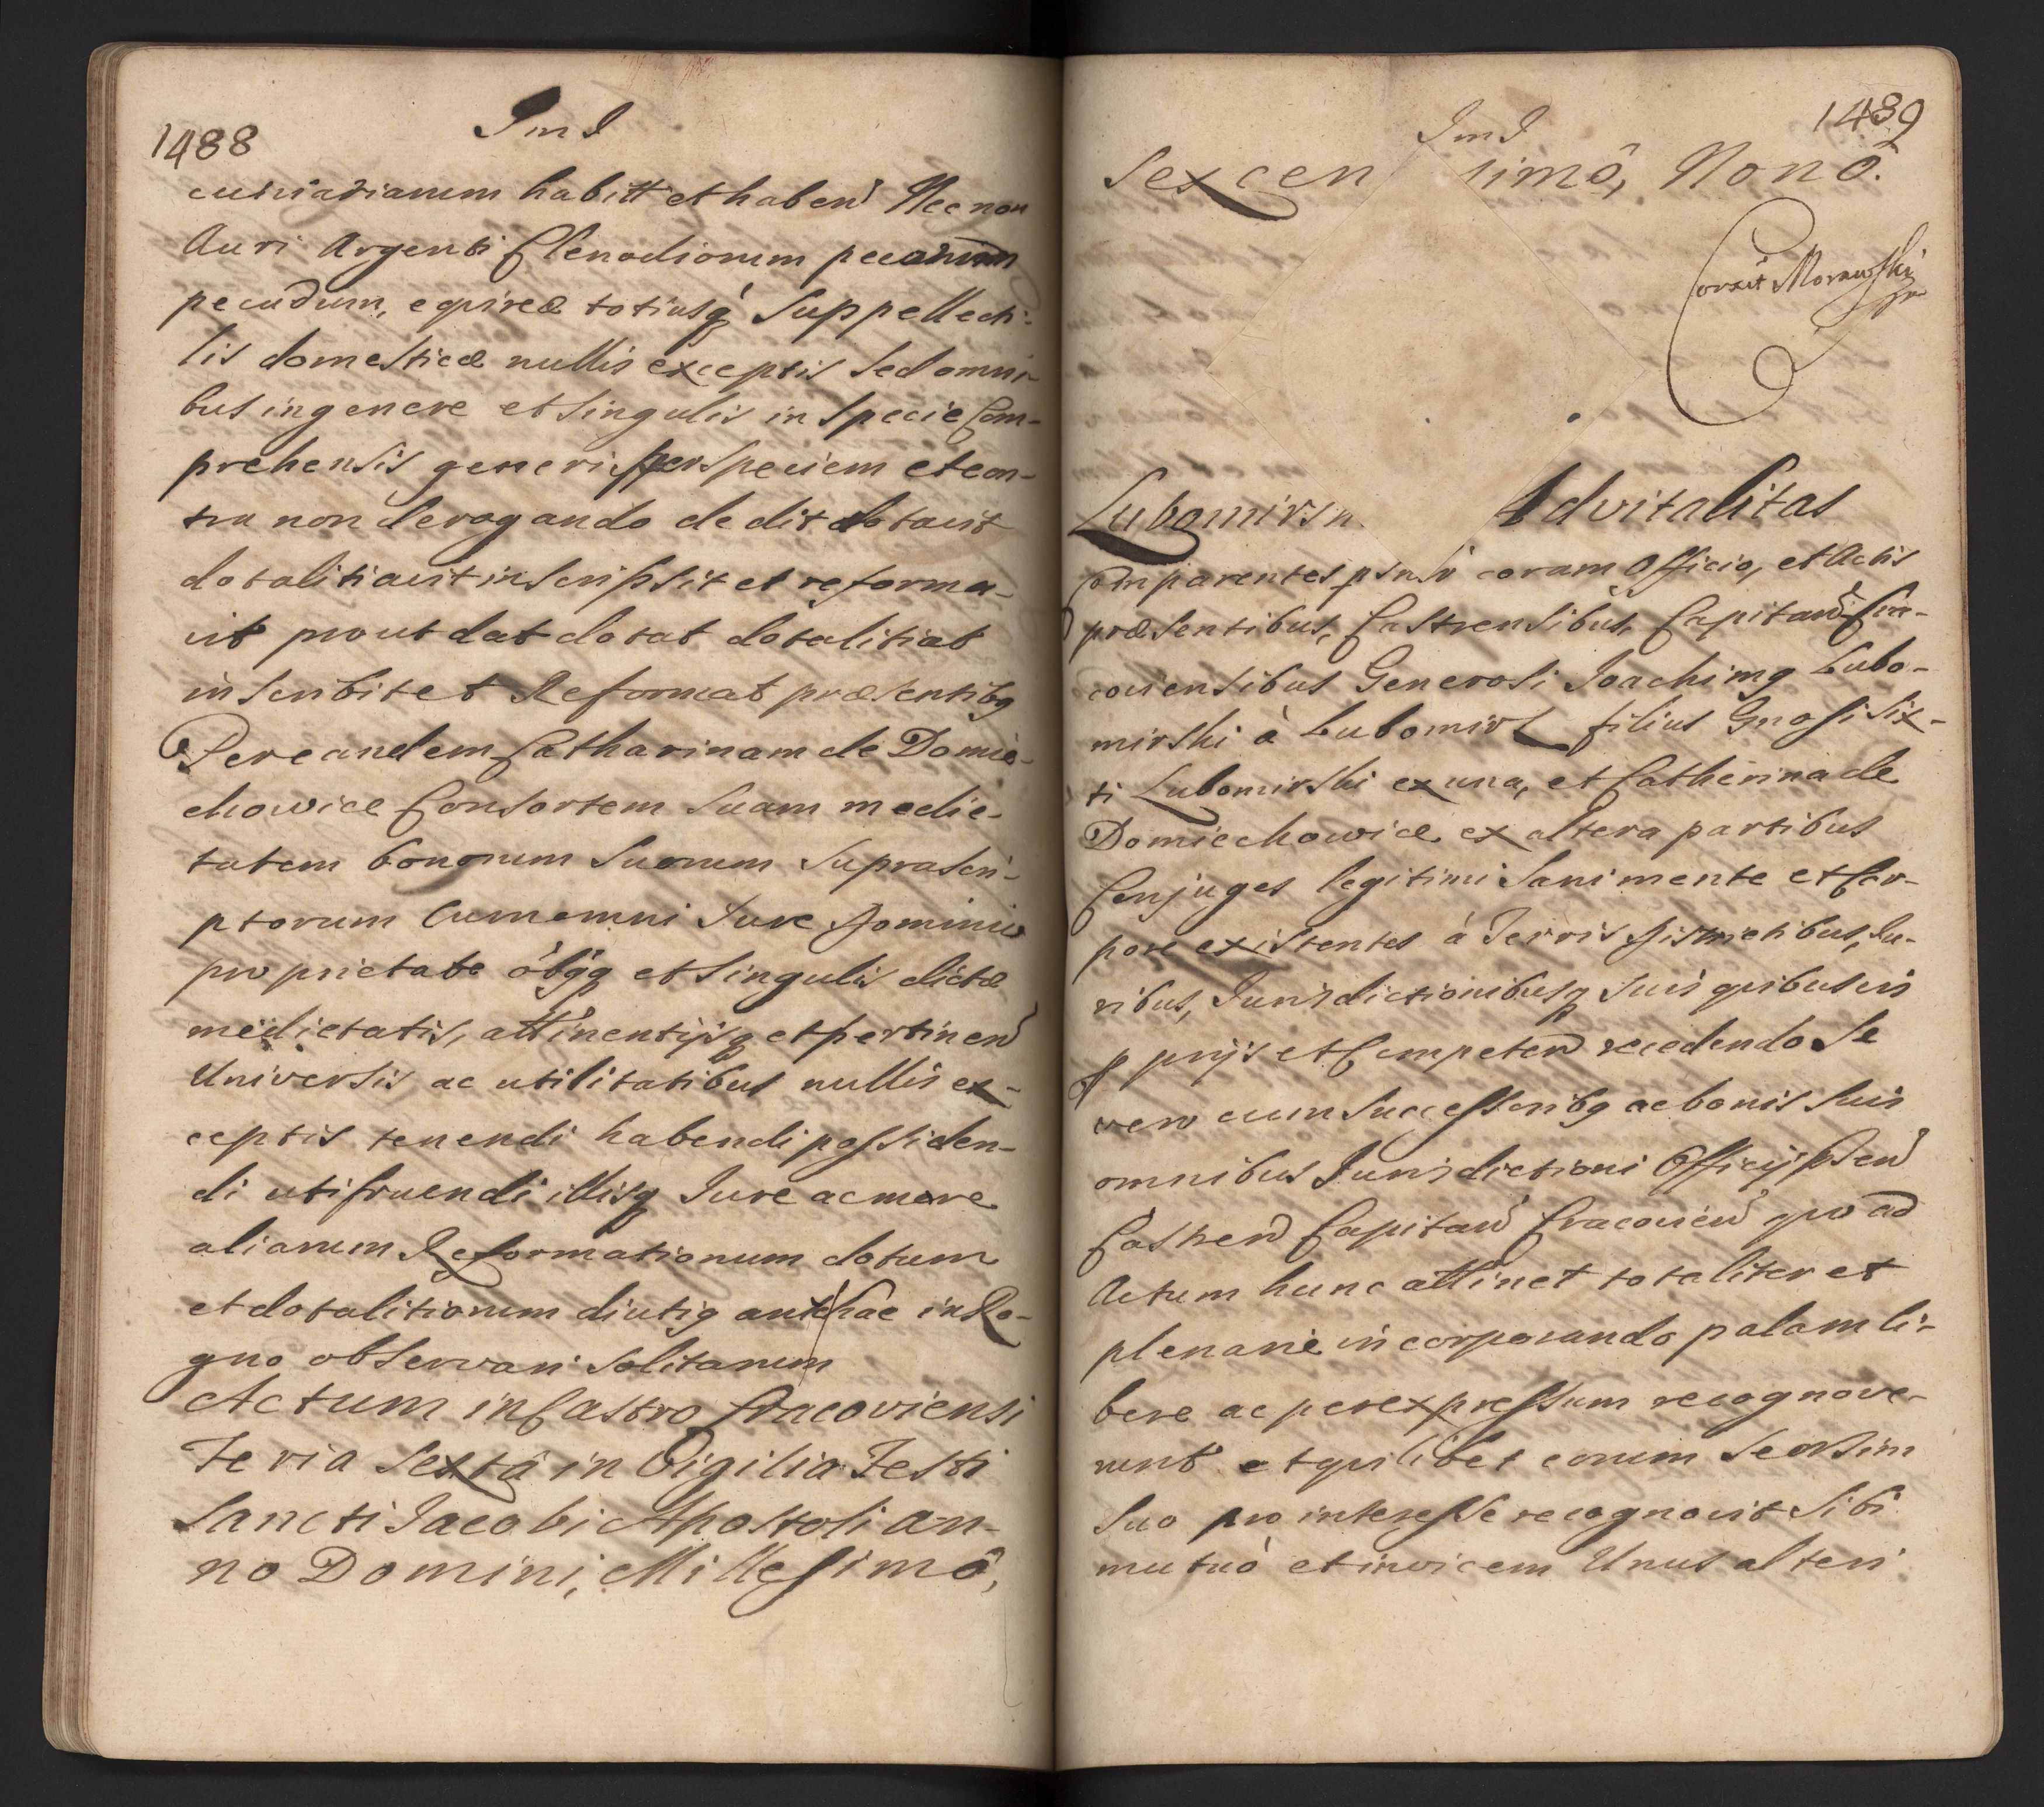 1488
ImI
cuniariarum habitt et haben Nec non
Auri Argenti Clenodiorum
pecudum, equireæ totiusq Suppellecti-
lis domesticæ nullis exceptis Sed omni-
bus in genere et Singulis in Specie Com-
prehensis generi per Speciem et con-
tra non derogando dedit dotavit
dotalitiavit inscripsit et reforma-
vit prout dat dotat dotalitiat
inscribit et Reformat præsentibq
Per eandem Catharinam de Domie-
chowice Consortem Suam medie-
tatem bonorum Suorum Suprascri-
ptorum Cum omni Iure Dominio
proprietate oibq et Singulis dictæ
medietatis, attinentijsq et pertinen
Universis ac utilitatibus nullis ex-
ceptis tenendi habendi possiden-
di utifruendi illisq Iure ac more
aliarum Reformationum dotum
et dotalitiorum diutiq antehac in Re-
gno observari Solitarum
Actum in Castro Cracoviensi
Feria Sexta in Vigilia Festi
Sancti Jacobi Apostoli An-
no Domini, Millesimô,
1489
ImI
Sexcen simô, Nonô.
Corxit Morawski
Lubomirs Advitalitas
Comparentes psnlr coram Officio, et Actis
præsentibus, Castrensibus, Capitan Cra-
coviensibus Generosi Joachimq Lubo-
mirski à Lubomirz filius Gnosi Six-
ti Lubomirski ex una, et Catherina de
Domiechowice ex altera partibus
Conjuges legitimi Sani mente et Cor-
pore existentes à Terris Districtibus, Iu-
ribus, Jurisdictionibusq Suis quibusvis
pprijs et Competen recedendo Se
vero cum Successoribq ac bonis Suis
omnibus Jurisdictioni Officij psen
Castren Capitan Cracovien quo ad
Actum hunc attinet totaliter et
plenarie incorporando palam li-
bere ac per expressum recognove-
runt et quilibet eorum Seorsim
Suo pro interesse recognovit Sibi
mutuò et invicem Unus alteri